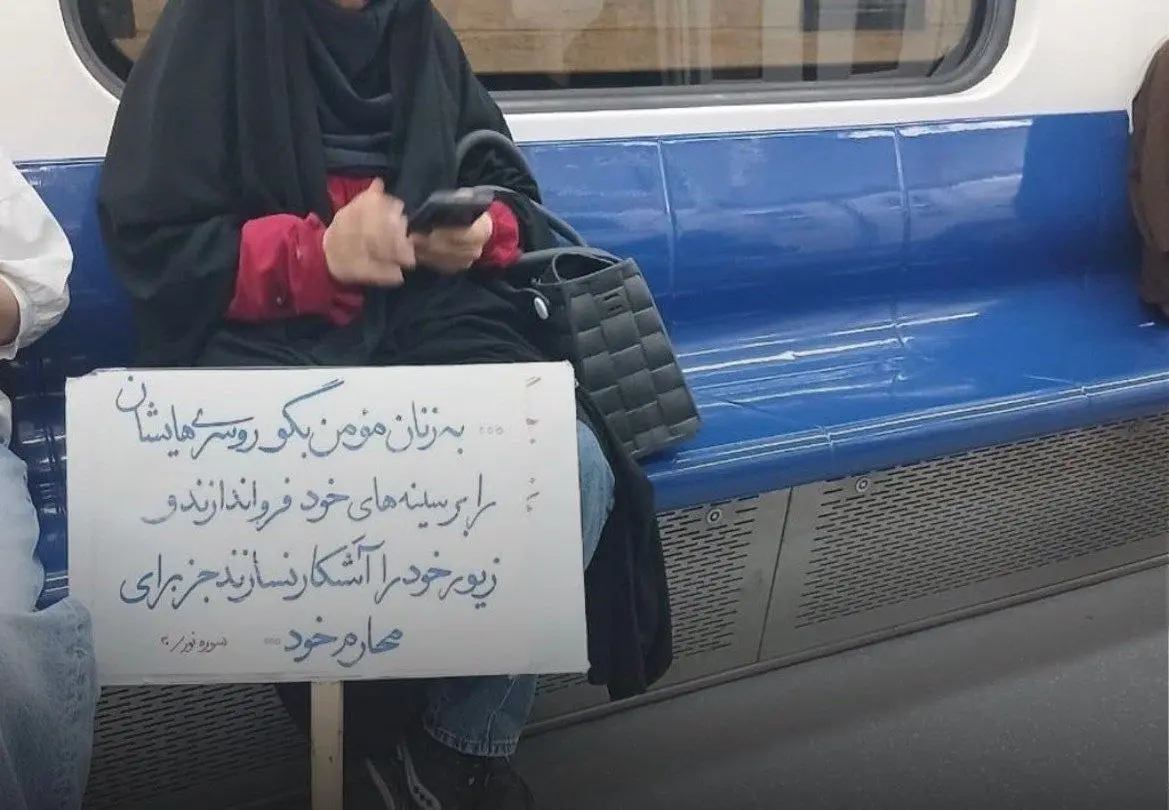 ... به زنان مؤمن بگو روسری‌هایشان
را بر سینه‌های خود فرو اندازند و
زیور خود را آشکار نسازند جز برای
محارم خود ...
سوره نور/